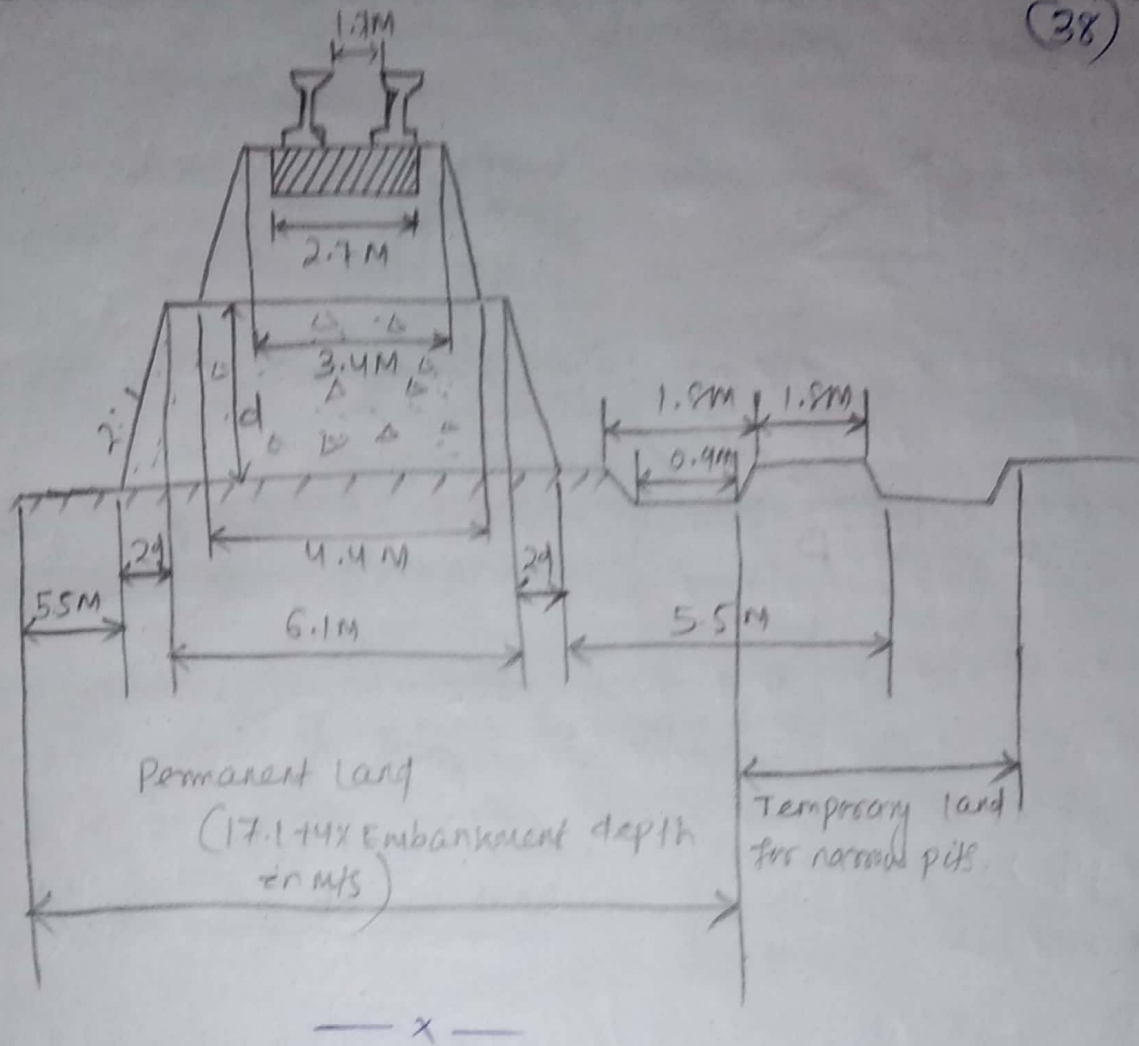 (38)
1.7M
2.7M
3.4M
d
2:1
1.8m
1.8m
0.9m
2d
4.4M
2d
5.5M
6.1M
5.5M
Permanent land
(17.1+4x Embankment depth
in mts)
Temprory land
for pits
x